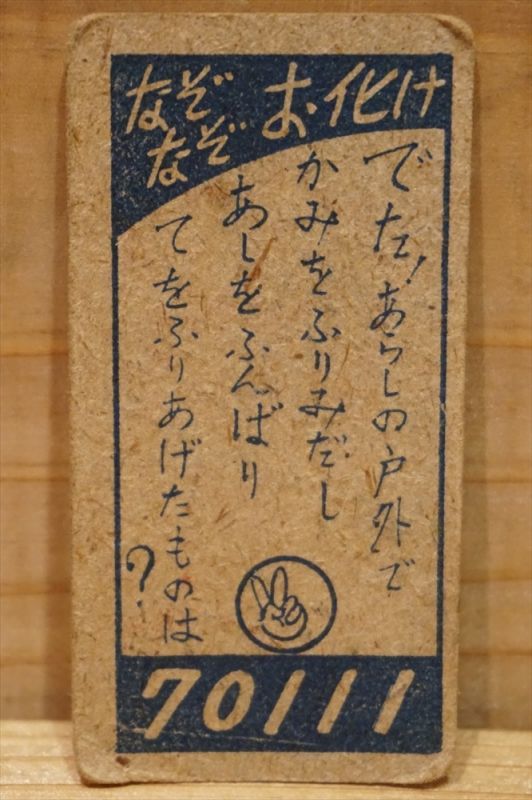 なぞなぞ お化け
でた！あらしの戸外で
かみをふりみだし
あしをふんばり
てをふりあげたものは？
70111